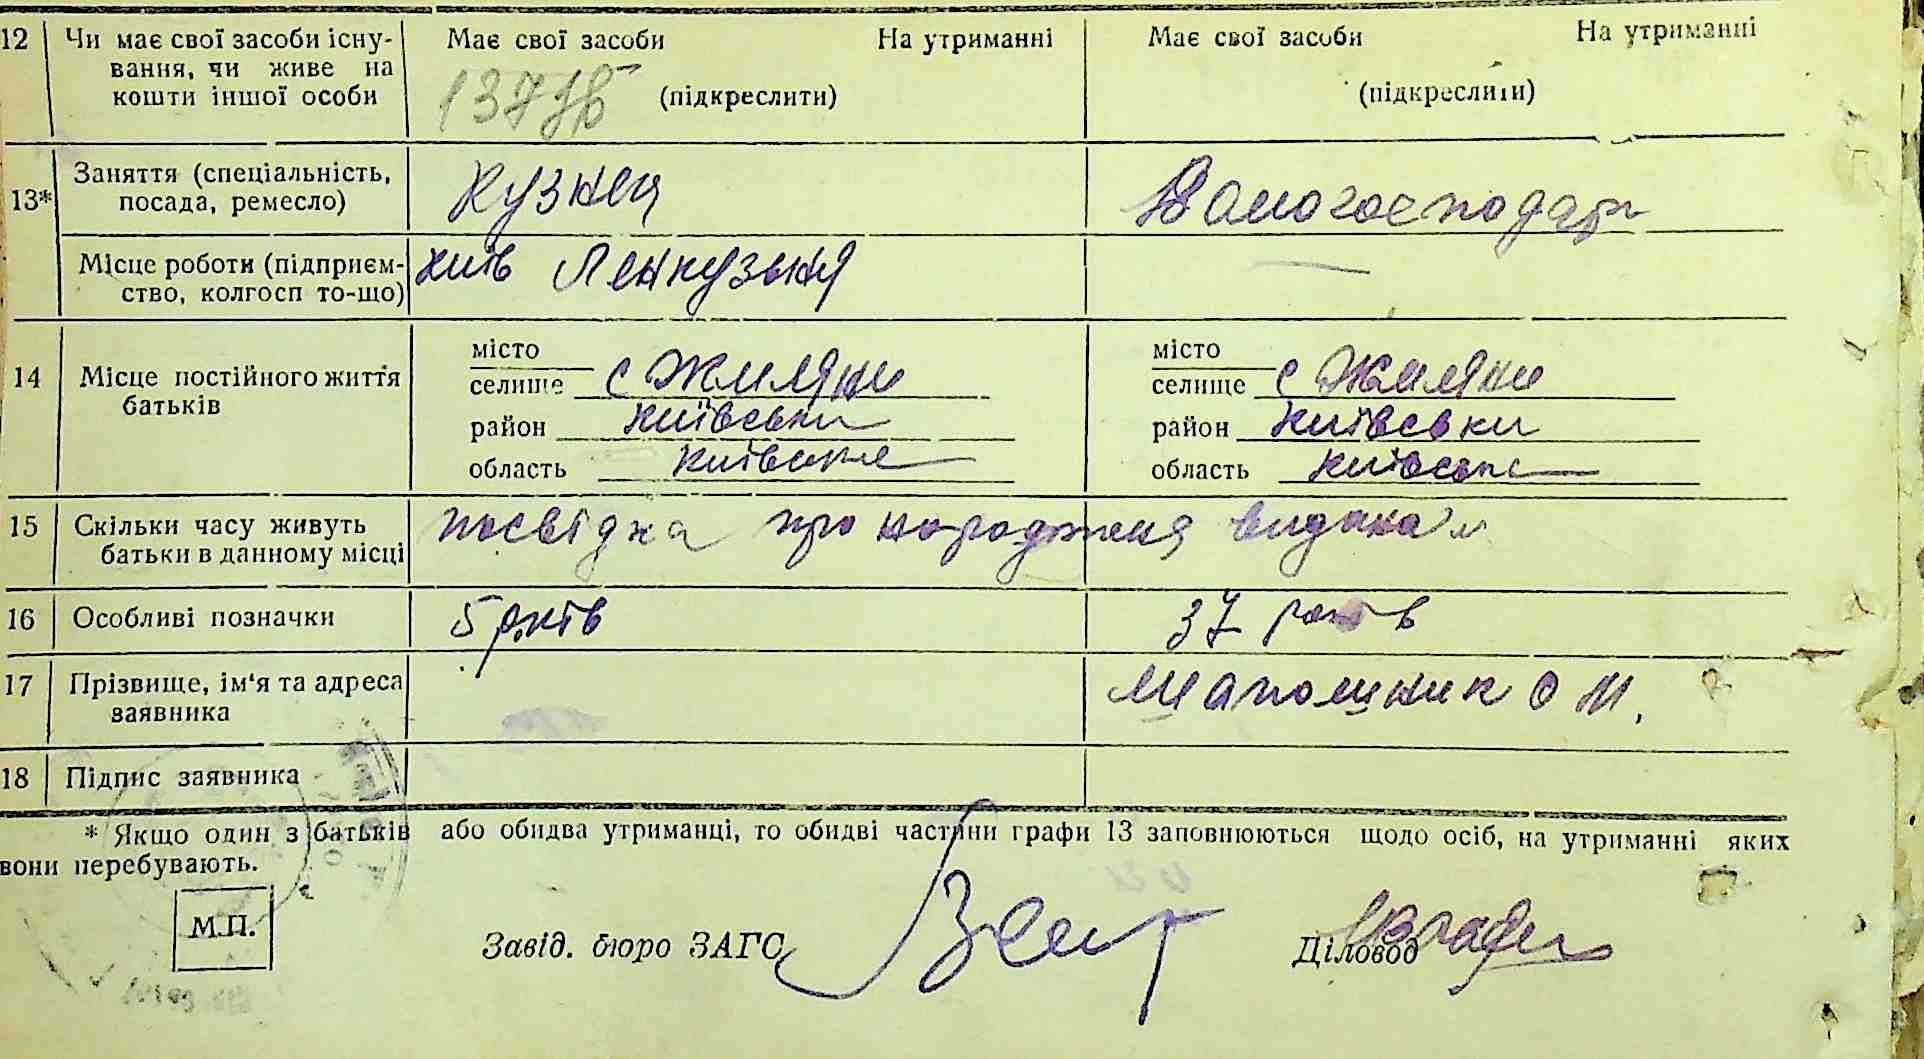 12 Чи має свої засоби існу- Має свої засоби На утриманні Має свої засоби На утриманні
вання, чи живе на
кошти іншої особи (підкреслити) (підкреслити)
13* Заняття (спеціальність, Кузнец Домогосподар
посада, ремесло)
Місце роботи (підприєм- київ Ленкузьня
ство, колгосп то-що)
14 Місце постійного життя батьків місто місто
селище с Жиляни селище с Жиляни
район київськи район київськи
область київське область київське
15 Скільки часу живуть посвідка про народженя видана
батьки в данному місці
16 Особливі позначки 5 років 37 років
17 Прізвище, ім'я та адреса Шапошник О М.
заявника
18 Підпис заявника
* Якщо один з батьків або обидва утриманці, то обидві частини графи 13 заповнюються щодо осіб, на утриманні яких
вони перебувають.
М.П.
Завід. бюро ЗАГС Діловод